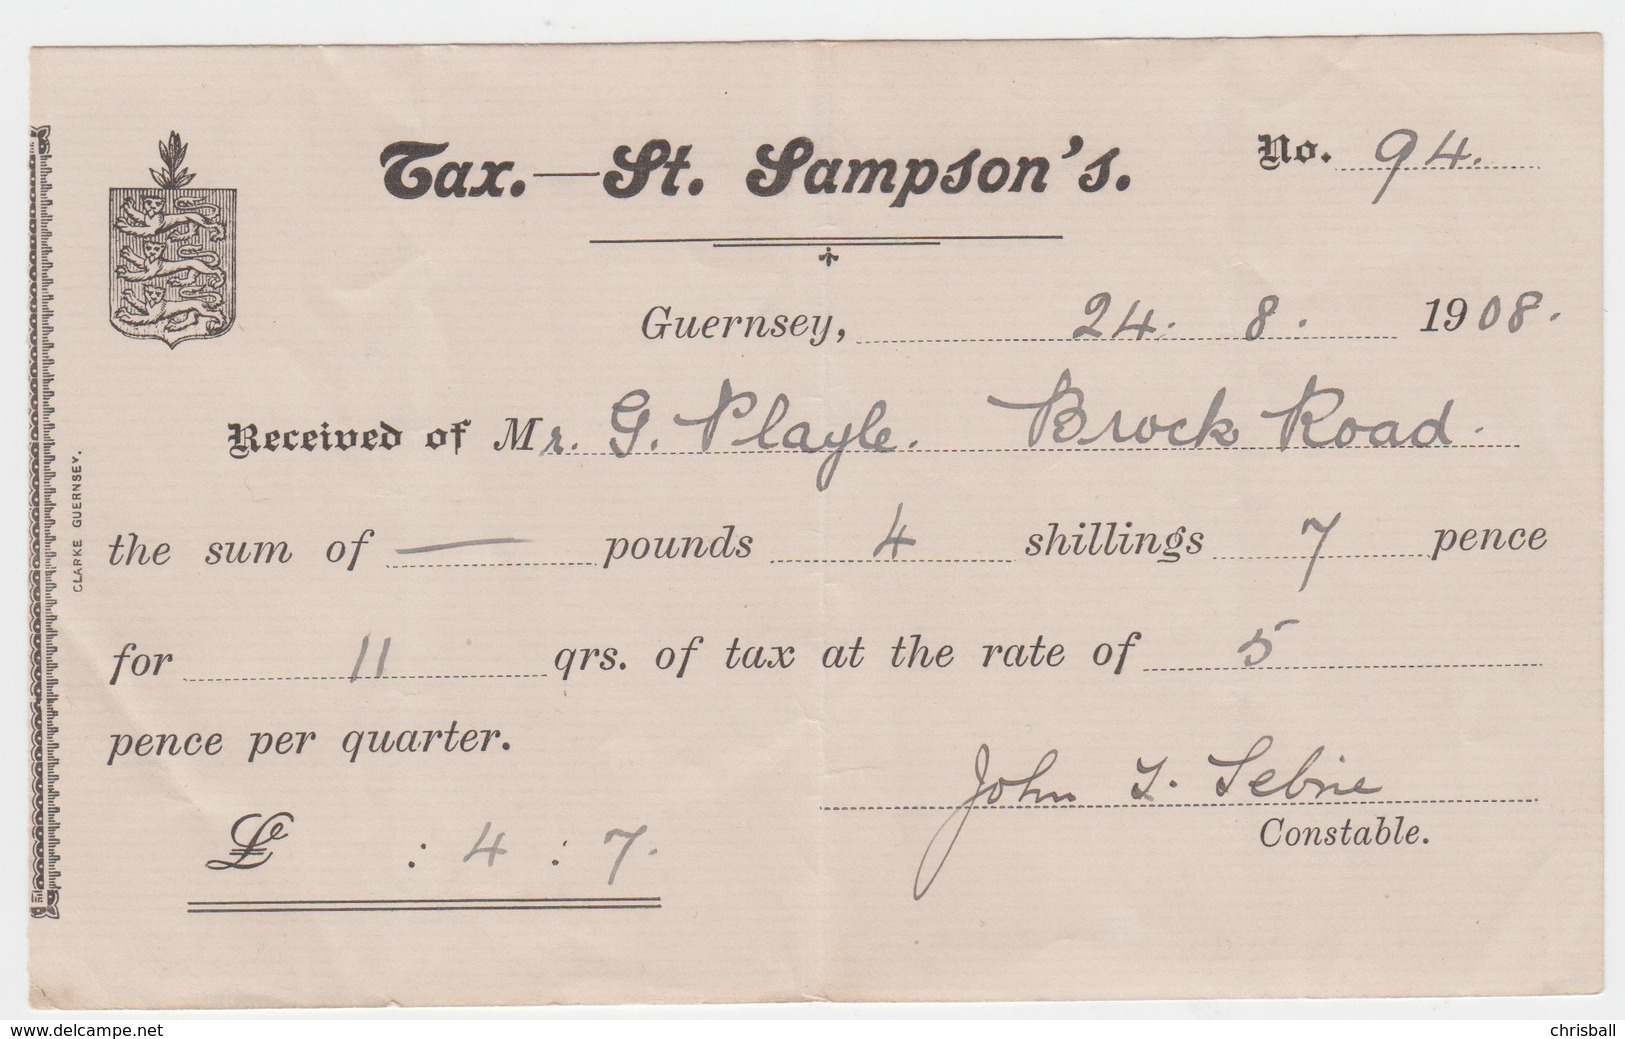 Tax.—St. Sampson's.
No. 94.
Guernsey, 24. 8. 1908.
Received of Mr. G. Playle. Brock Road.
the sum of — pounds 4 shillings 7 pence
for 11 qrs. of tax at the rate of 5
pence per quarter.
John
Constable.
£ : 4 : 7.
CLARKE GUERNSEY.
www.delcampe.net
chrisball